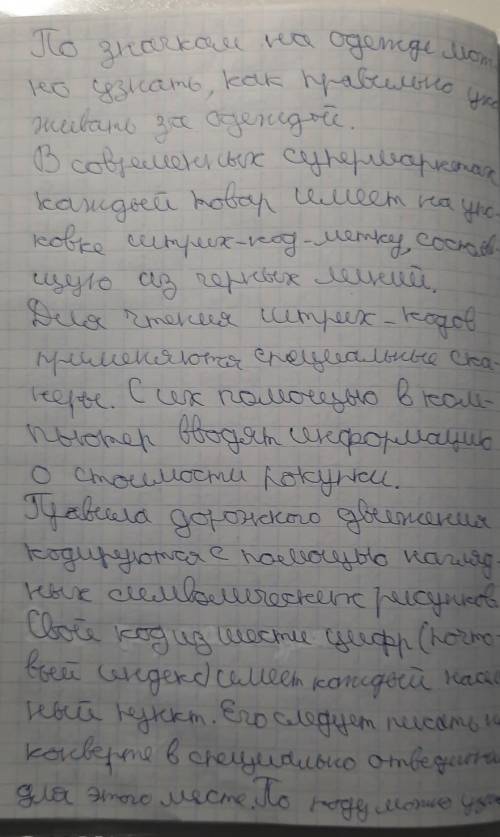 По значкам на одежде мож
но узнать, как правильно уха
живать за одеждой.
В современных супермаркетах
каждый товар имеет на упа
ковке штрих-код-метку, состояв-
щую из черных линий.
Для чтения штрих-кодов
применяются специальные ска-
неры. С их помощью в ком-
пьютер вводят информацию
о стоимости покупки.
Правила дорожного движения
кодируются с помощью нагляд-
ных символических рисунков.
Свой код из шести цифр (почто-
вый индекс) имеет каждый насе
ный пункт. Его следует писать н
конверте в специально отведенн
для этого месте. По коду можно узн